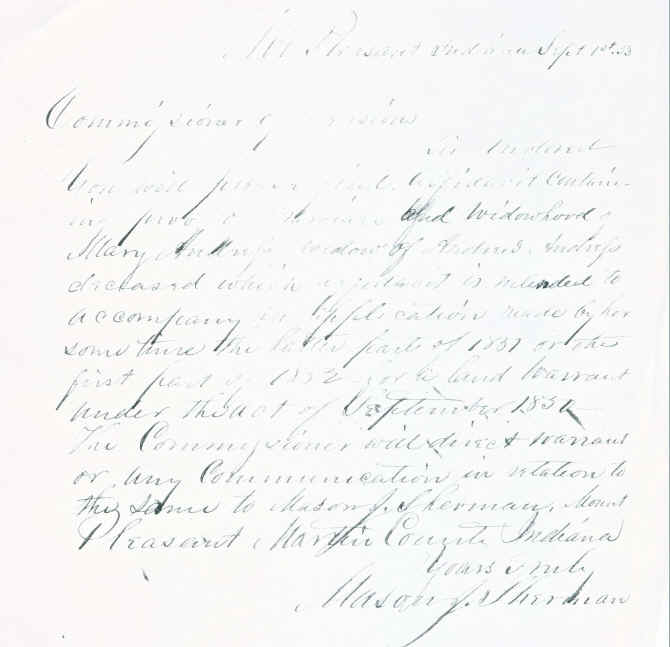 Mt Pleasant Indiana Sept 1st 53
Commissioner of Pensions
Sir Enclosed
You will please find Affidavit contain-
ing proof of Service and Widowhood of
Mary widow of
deceased which affidavit is intended to
accompany an application made by her
some time the latter part of 1851 or the
first part of 1852 for a land Warrant
under the act of September 1850
The Commissioner will direct warrant
or any Communication in relation to
the same to Mason J. Sherman, Mount
Pleasant Martin County Indiana
Yours Truly
Mason J. Sherman